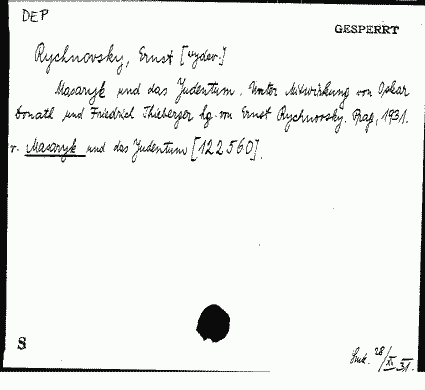 DEP
GESPERRT
Rychnovsky, Ernst [vydav.]
Masaryk und das Judentum. Unter Mitwirkung von Oskar
Donath und Friedrich Thieberger hg. von Ernst Rychnovsky. Prag, 1931.
v. Masaryk und das Judentum [122560].
8
28/XI 31.